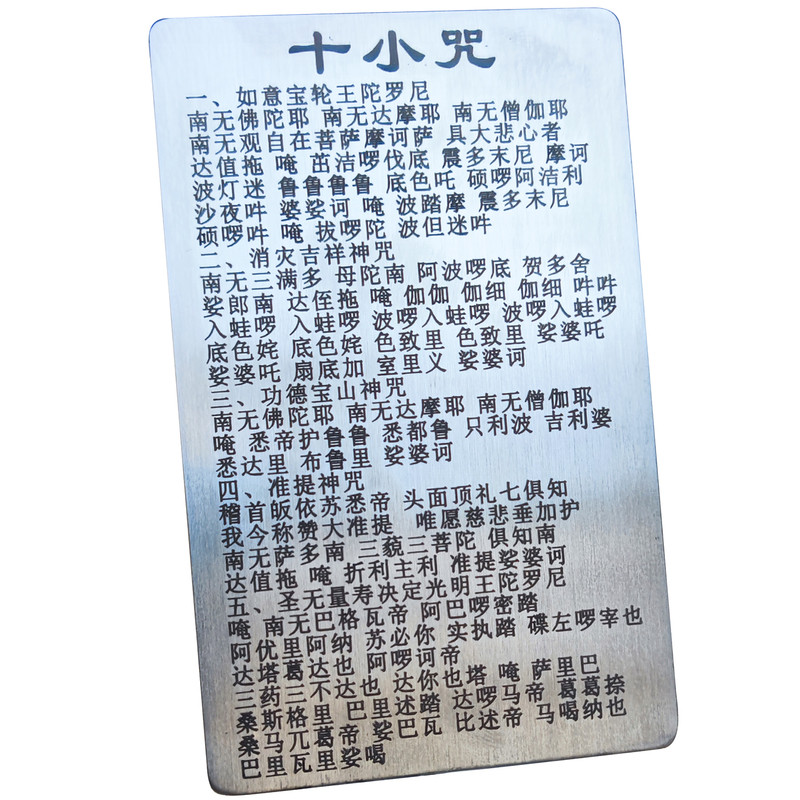 十小咒
一、如意宝轮王陀罗尼
南无佛陀耶 南无达摩耶 南无僧伽耶
南无观自在菩萨摩诃萨 具大悲心者
达值拖 唵 茁洁啰伐底 震多末尼 摩诃
波灯迷 鲁鲁鲁鲁 底色吒 硕啰阿洁利
沙夜吽 婆娑诃 唵 波踏摩 震多末尼
硕啰吽 唵 拔啰陀 波但迷吽
二、消灾吉祥神咒
南无三满多 母陀南 阿波啰底 贺多舍
娑郎南 达侄拖 唵 伽伽 伽细 伽细 吽吽
入蛙啰 入蛙啰 波啰入蛙啰 波啰入蛙啰
底色姹 底色姹 色致里 色致里 娑婆吒
娑婆吒 扇底加 室里义 娑婆诃
三、功德宝山神咒
南无佛陀耶 南无达摩耶 南无僧伽耶
唵 悉帝护鲁鲁 悉都鲁 只利波 吉利婆
悉达里 布鲁里 娑婆诃
四、准提神咒
稽首皈依苏悉帝 头面顶礼七俱知
我今称赞大准提 唯愿慈悲垂加护
南无萨多南 三藐三菩陀 俱知南
达值拖 唵 折利主利 准提娑婆诃
五、圣无量寿决定光明王陀罗尼
唵 南无巴格瓦帝 阿巴啰密踏
阿优里阿纳 苏必你 实执踏 碟左啰宰也
达塔葛达也 阿啰诃帝
三药三不达也 达你也塔 唵 萨里巴
桑斯格里巴里述踏 达啰马帝 葛葛捺
桑马兀葛帝 娑巴瓦 比述帝 马喝纳也
巴里瓦里娑喝